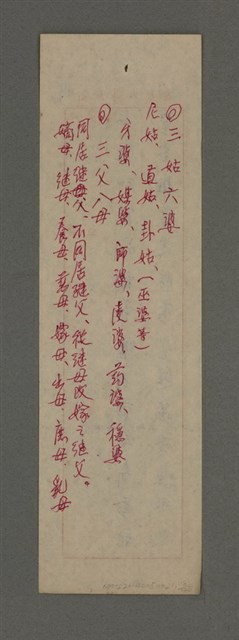 ◎三姑六婆
尼姑、道姑、卦姑、(巫婆等)
牙婆、媒婆、師婆、虔婆、葯婆、穩婆
◎三父八母
同居继父、不同居继父、從继母改嫁之继父。
嫡母、继母、養母、慈母、嫁母、出母、庶母、乳母